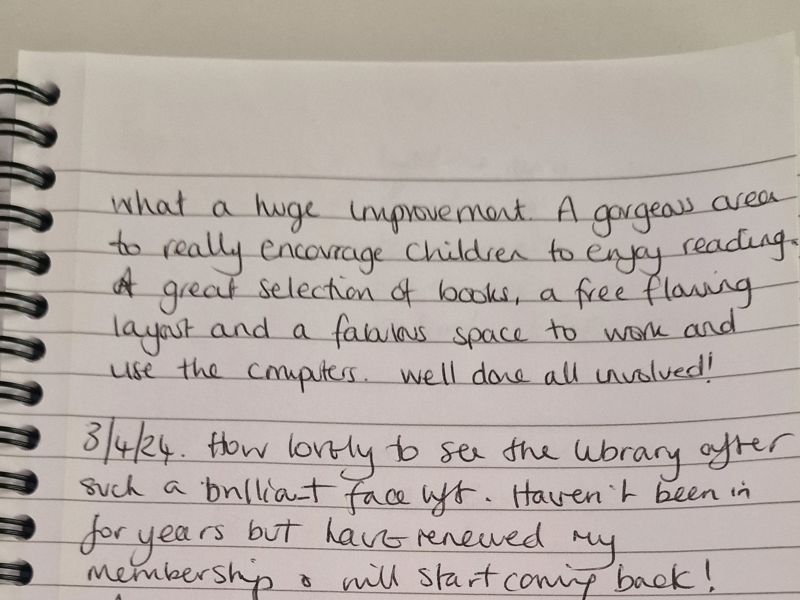 what a huge improvement. A gorgeous area
to really encourage children to enjoy reading.
A great selection of books, a free flowing
layout and a fabulous space to work and
use the computers. Well done all involved!
3/4/24. How lovely to see the library after
such a brilliant face lift. Haven't been in
for years but have renewed my
membership & will start coming back!